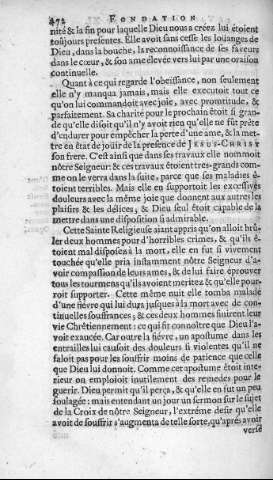 472 FONDATION
nité & la fin pour laquelle Dieu nous a créez lui étoient
toûjours presentes. Elle avoit sans cesse les loüanges de
Dieu, dans la bouche, la reconnoissance de ses faveurs
dans le cœur, & son ame élevée vers lui par une oraison
continuelle.
Quant à ce qui regarde l'obeïssance, non seulement
elle n'y manqua jamais, mais elle executoit tout ce
qu'on lui commandoit avec joie, avec promtitude, &
parfaitement. Sa charité pour le prochain étoit si gran-
de qu'elle disoit qu'il n'y avoit rien qu'elle ne fût prête
d'endurer pour empêcher la perte d'une ame, & la met-
tre en état de joüir de la presence de JESUS-CHRIST
son frere. C'est ainsi que dans ses travaux elle nommoit
nôtre Seigneur: & ces travaux étoient tres-grands com-
me on le verra dans la suite, parce que ses maladies é-
toient terribles. Mais elle en supportoit les excessives
douleurs avec la même joie que donnent aux autres les
plaisirs & les délices; & Dieu seul étoit capable de la
mettre dans une disposition si admirable.
Cette Sainte Religieuse aiant appris qu'on alloit brû-
ler deux hommes pour d'horribles crimes, & qu'ils é-
toient mal disposez à la mort, elle en fut si vivement
touchée qu'elle pria instamment nôtre Seigneur d'a-
voir compassion de leurs ames, & de lui faire éprouver
tous les tourmens qu'ils avoient meritez & qu'elle pour-
roit supporter. Cette même nuit elle tomba malade
d'une fiévre qui lui dura jusques à la mort avec de con-
tinuelles souffrances; & ces deux hommes finirent leur
vie Chrétiennement: ce qui fit connoître que Dieu l'a-
voit exaucée. Car outre la fiévre, un apostume dans les
entrailles lui causoit des douleurs si violentes qu'il ne
faloit pas pour les souffrir moins de patience que celle
que Dieu lui donnoit. Comme cet apostume étoit inte-
rieur on emploioit inutilement des remedes pour le
guerir. Dieu permit qu'il perça, & qu'elle en fut un peu
soulagée: mais entendant un jour un sermon sur le sujet
de la Croix de nôtre Seigneur, l'extréme desir qu'elle
avoit de souffrir s'augmenta de telle sorte, qu'aprés avoir
versé